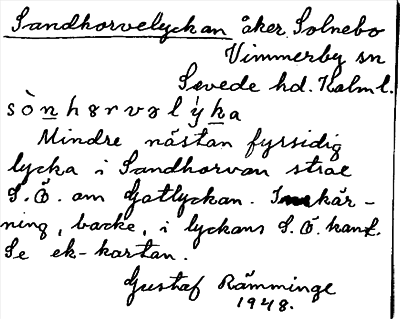 Sandhorvelyckan åker Solnebo
Vimmerby sn
Sevede hd. Kalm l.
sònhørvəlýka
Mindre nästan fyrsidig
lycka i Sandhorvan strax
S.Ö. om Gatlyckan. Inskär-
ning, backe, i lyckans S.Ö. kant.
Se ek-kartan.
Gustaf Rämminge
1948.